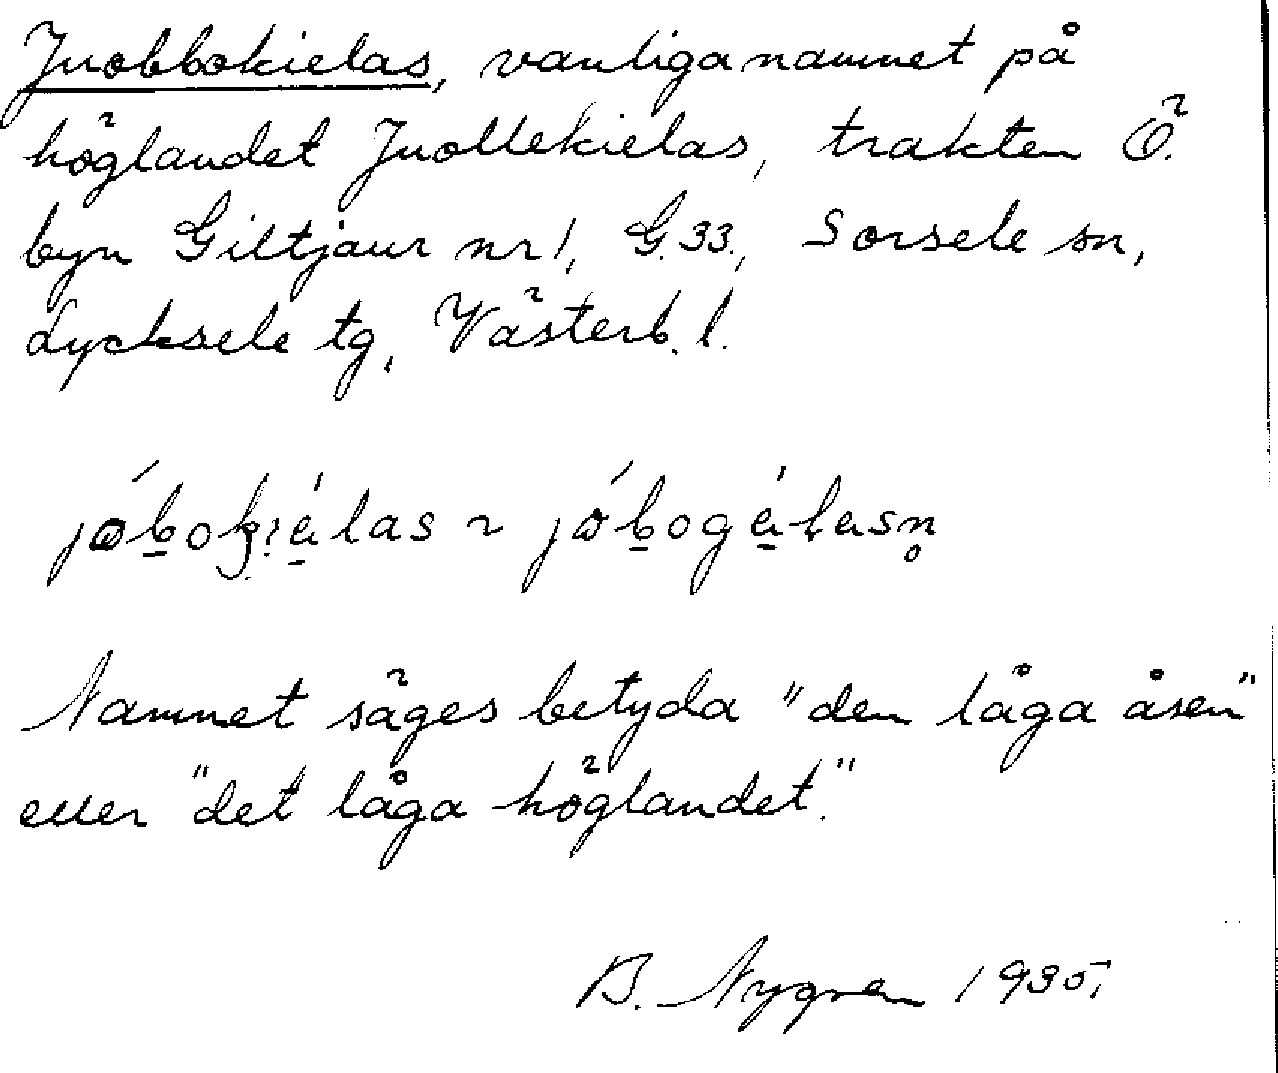 Juobbokielas, vanliga namnet på
höglandet Juollekielas, trakten Ö.
byn Giltjaur nr 1, G. 33, Sorsele sn,
Lycksele tg, Västerb. l.
Namnet säges betyda "den låga åsen"
eller "det låga höglandet".
B. Nygren 1935.